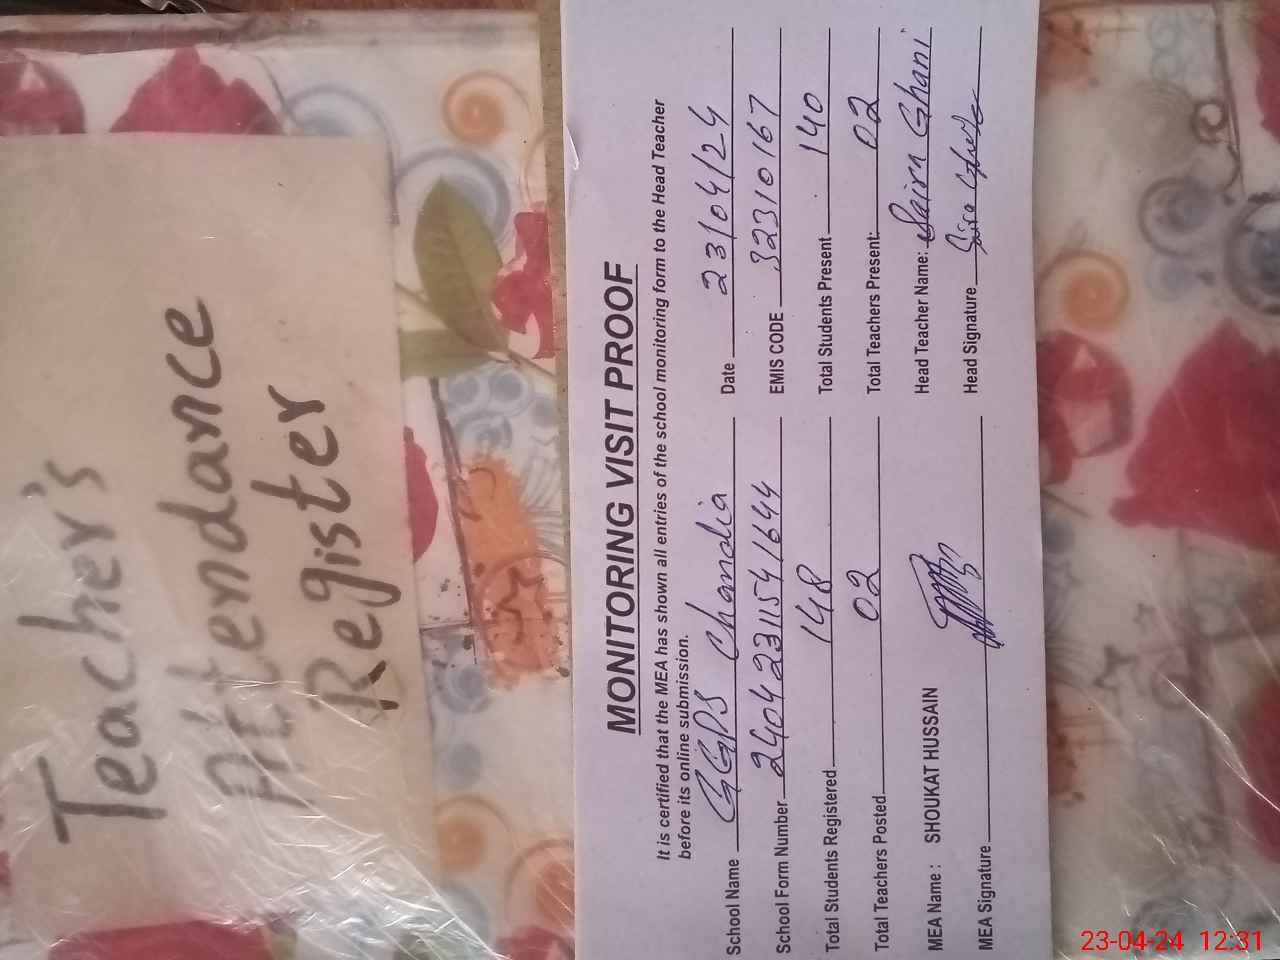 Teacher's
Attendance
Register
MONITORING VISIT PROOF
It is certified that the MEA has shown all entries of the school monitoring form to the Head Teacher
before its online submission.
School Name GGPS Chandia Date 23/04/24
School Form Number 24042311541644 EMIS CODE 32310167
Total Students Registered 148 Total Students Present 140
Total Teachers Posted 02 Total Teachers Present: 02
MEA Name : SHOUKAT HUSSAIN Head Teacher Name: Saira Ghani
MEA Signature Head Signature
23-04-24 12:31